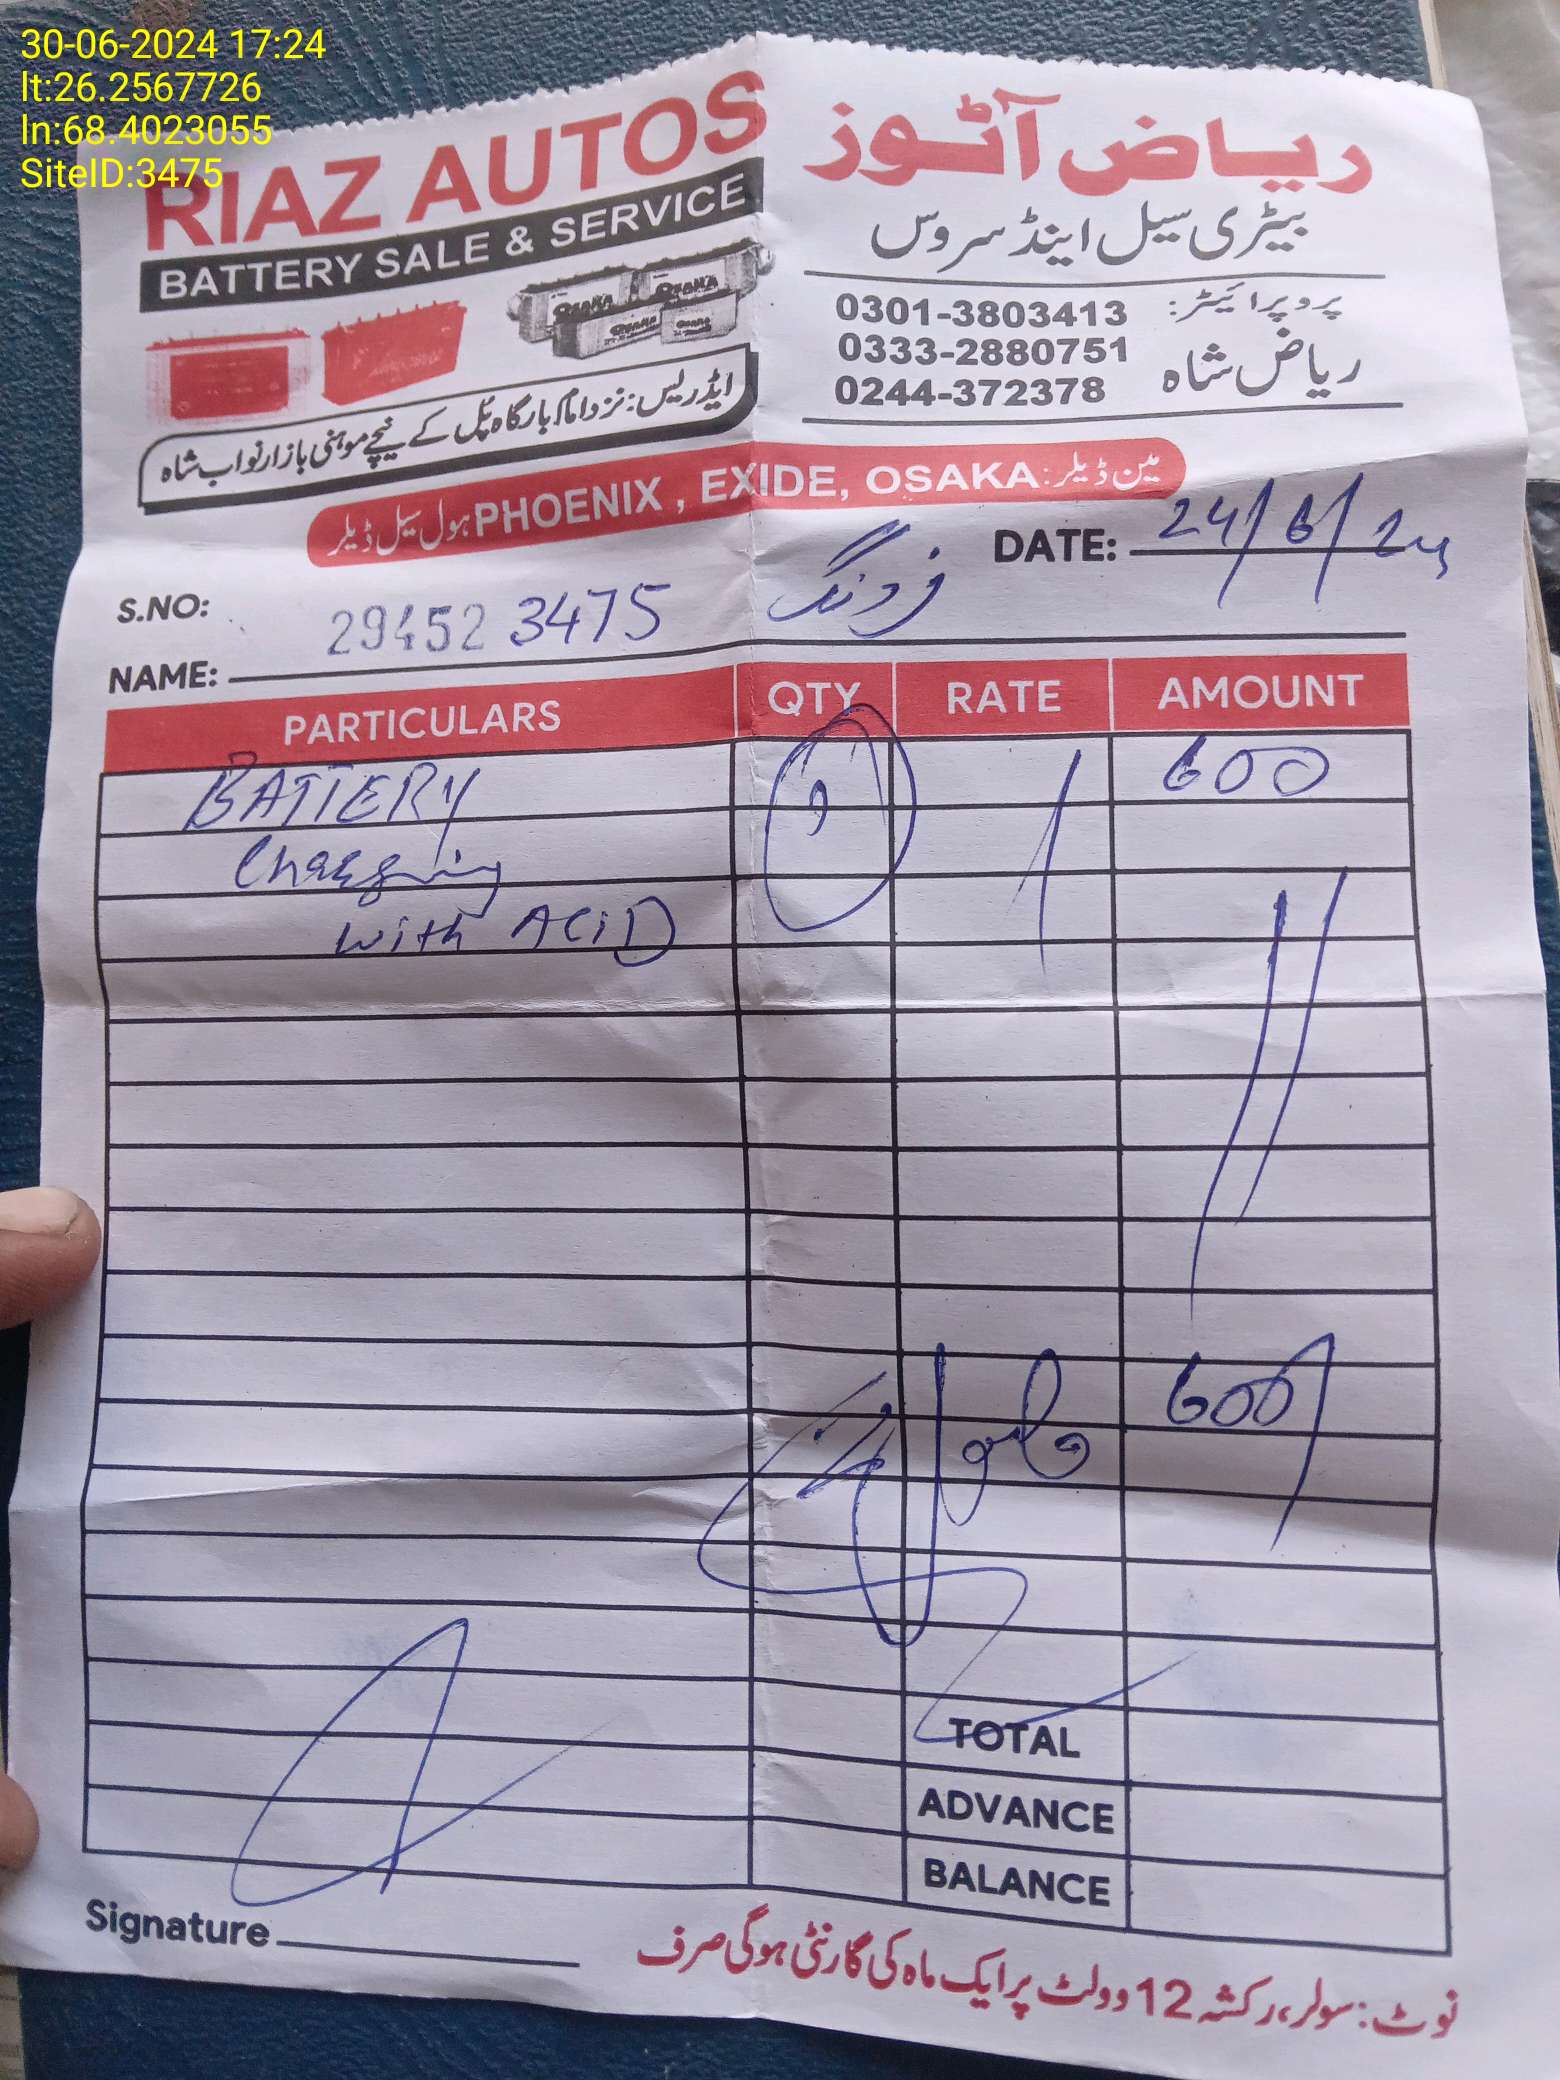 30-06-2024 17:24
lt:26.2567726
ln:68.4023055
SiteID:3475
RIAZ AUTOS
BATTERY SALE & SERVICE
OSAKA OSAKA
OSAKA OSAKA
ایڈریس: نزد امام بارگاہ پل کے نیچے موہنی بازار نواب شاہ
ریاض آٹوز
بیٹری سیل اینڈ سروس
پروپرائیٹر:
ریاض شاہ
0301-3803413
0333-2880751
0244-372378
مین ڈیلر: PHOENIX , EXIDE, OSAKA ہول سیل ڈیلر
DATE: 24/6/24
S.NO: 29452 3475
NAME:
PARTICULARS QTY RATE AMOUNT
BATTERY 600
Charging
with ACID
600/
TOTAL
ADVANCE
BALANCE
Signature
نوٹ: سولر، رکشہ 12 وولٹ پر ایک ماہ کی گارنٹی ہوگی صرف